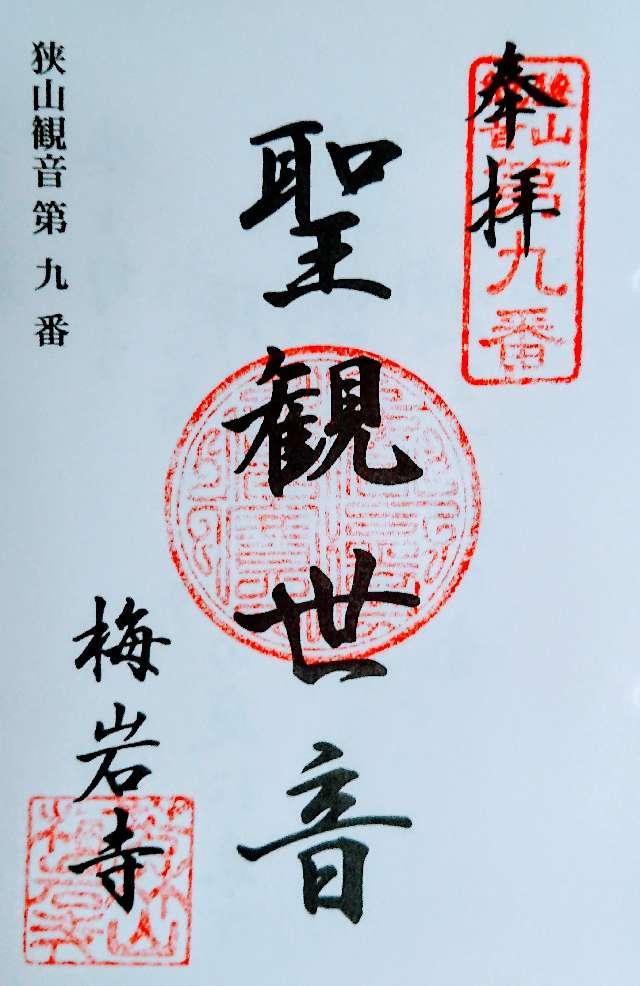 奉拝
狭山
観音
第九番
聖観世音
梅岩寺
狭山観音第九番